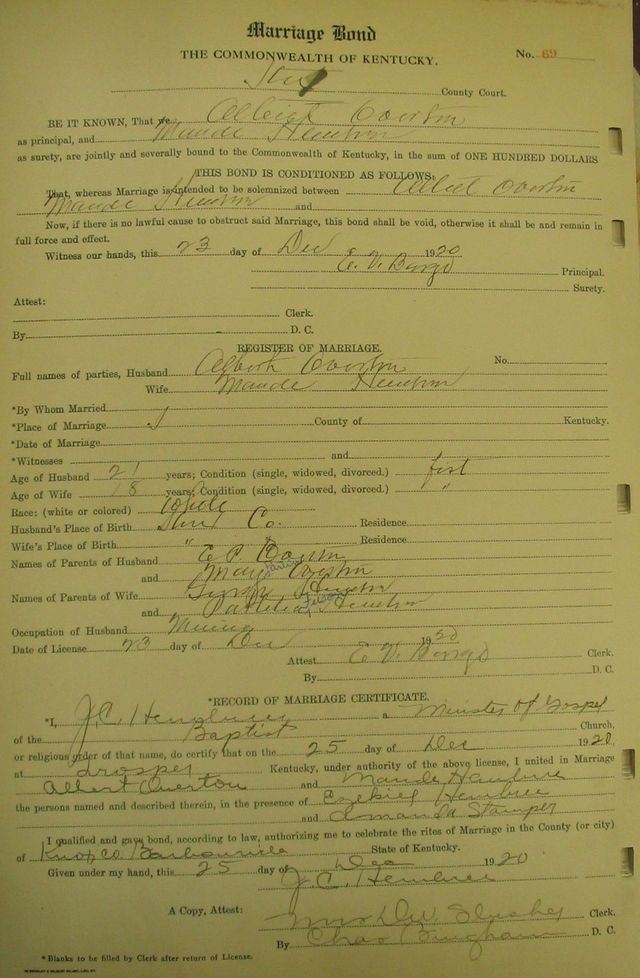 Marriage Bond
THE COMMONWEALTH OF KENTUCKY.
No. 69
County Court.
BE IT KNOWN, That we
as principal, and Maude
as surety, are jointly and severally bound to the Commonwealth of Kentucky, in the sum of ONE HUNDRED DOLLARS
THIS BOND IS CONDITIONED AS FOLLOWS:
That, whereas Marriage is intended to be solemnized between Albert Overton
Maude and
Now, if there is no lawful cause to obstruct said Marriage, this bond shall be void, otherwise it shall be and remain in
full force and effect.
Witness our hands, this 23 day of Dec 1920
E. V. Bargo Principal.
Surety.
Attest:
Clerk.
By D. C.
REGISTER OF MARRIAGE.
Full names of parties, Husband Overton No.
Wife Maude
*By Whom Married
*Place of Marriage County of Kentucky.
*Date of Marriage
*Witnesses and
Age of Husband 21 years; Condition (single, widowed, divorced.) first
Age of Wife 18 years; Condition (single, widowed, divorced.) "
Race: (white or colored) White
Husband's Place of Birth Co. Residence
Wife's Place of Birth " Residence
Names of Parents of Husband E. P.
and Mary Overton
Names of Parents of Wife
and
Occupation of Husband Mining
Date of License 23 day of Dec 1920
Attest E. V. Bargo Clerk.
By D. C.
*RECORD OF MARRIAGE CERTIFICATE.
*I, J. C. Hembree a Minister of Gospel
of the Baptist Church,
or religious order of that name, do certify that on the 25 day of Dec 1920,
at Prosper Kentucky, under authority of the above license, I united in Marriage
Albert Overton and Maude Hembree
the persons named and described therein, in the presence of Ezekiel Hembree
and Amanda Stamper
I qualified and gave bond, according to law, authorizing me to celebrate the rites of Marriage in the County (or city)
of Knox Co. Barbourville State of Kentucky.
Given under my hand, this 25 day of Dec 1920
J. C. Hembree
A Copy, Attest: Mrs. D. W. Slusher Clerk.
By Chas Bingham D. C.
* Blanks to be filled by Clerk after return of License.